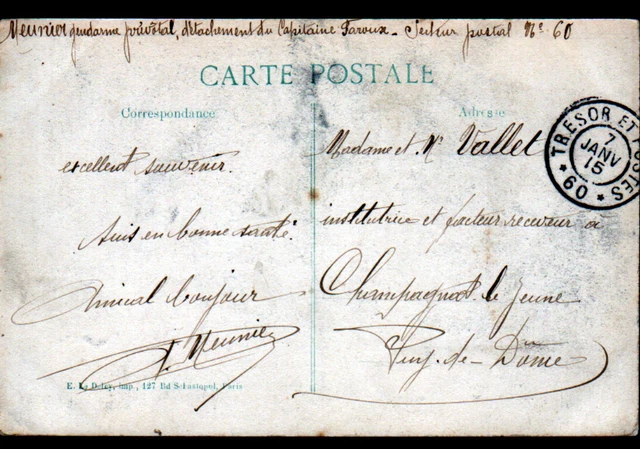 Meunier gendarme prévôtal, détachement du Capitaine Faroux - Secteur postal No 60
CARTE POSTALE
Correspondance
Adresse
excellent souvenir.
Suis en bonne santé.
Amical bonjour
Meunier
Madame et Mr Vallet
institutrice et facteur receveur à
Champagnat-le-Jeune
Puy-de-Dôme
TRÉSOR ET POSTES
7
JANV
15
* 60 *
E. Le Deley, imp., 127 Bd Sébastopol, Paris